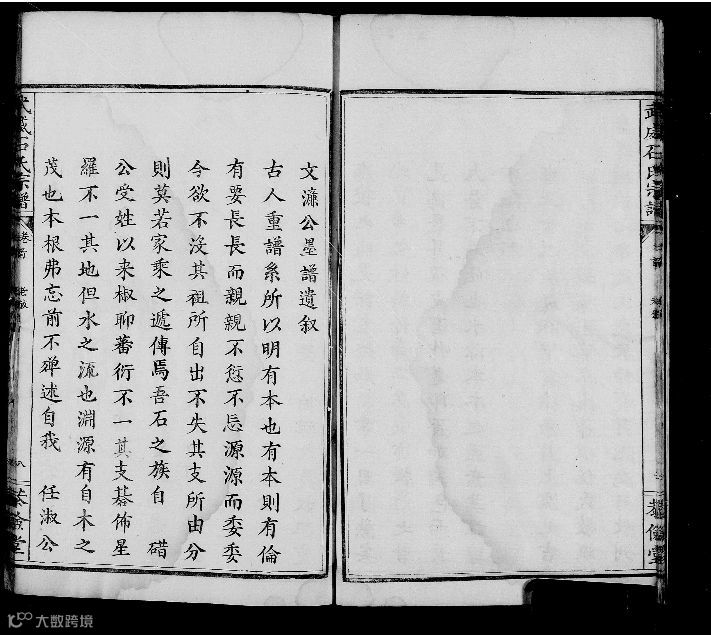 武威石氏宗譜
文濂公墨譜遺叙
古人重譜系所以明有本也有本則有倫
有要長長而親親不愆不忘源源而委委
今欲不沒其祖所自出不失其支所由分
則莫若家乘之遞傳焉吾石之族自 碏
公受姓以来椒聊蕃衍不一其支棊佈星
羅不一其地但水之流也淵源有自木之
茂也木根弗忘前不殫述自我 任淑公
武威石氏宗譜
卷首
八
大数跨境